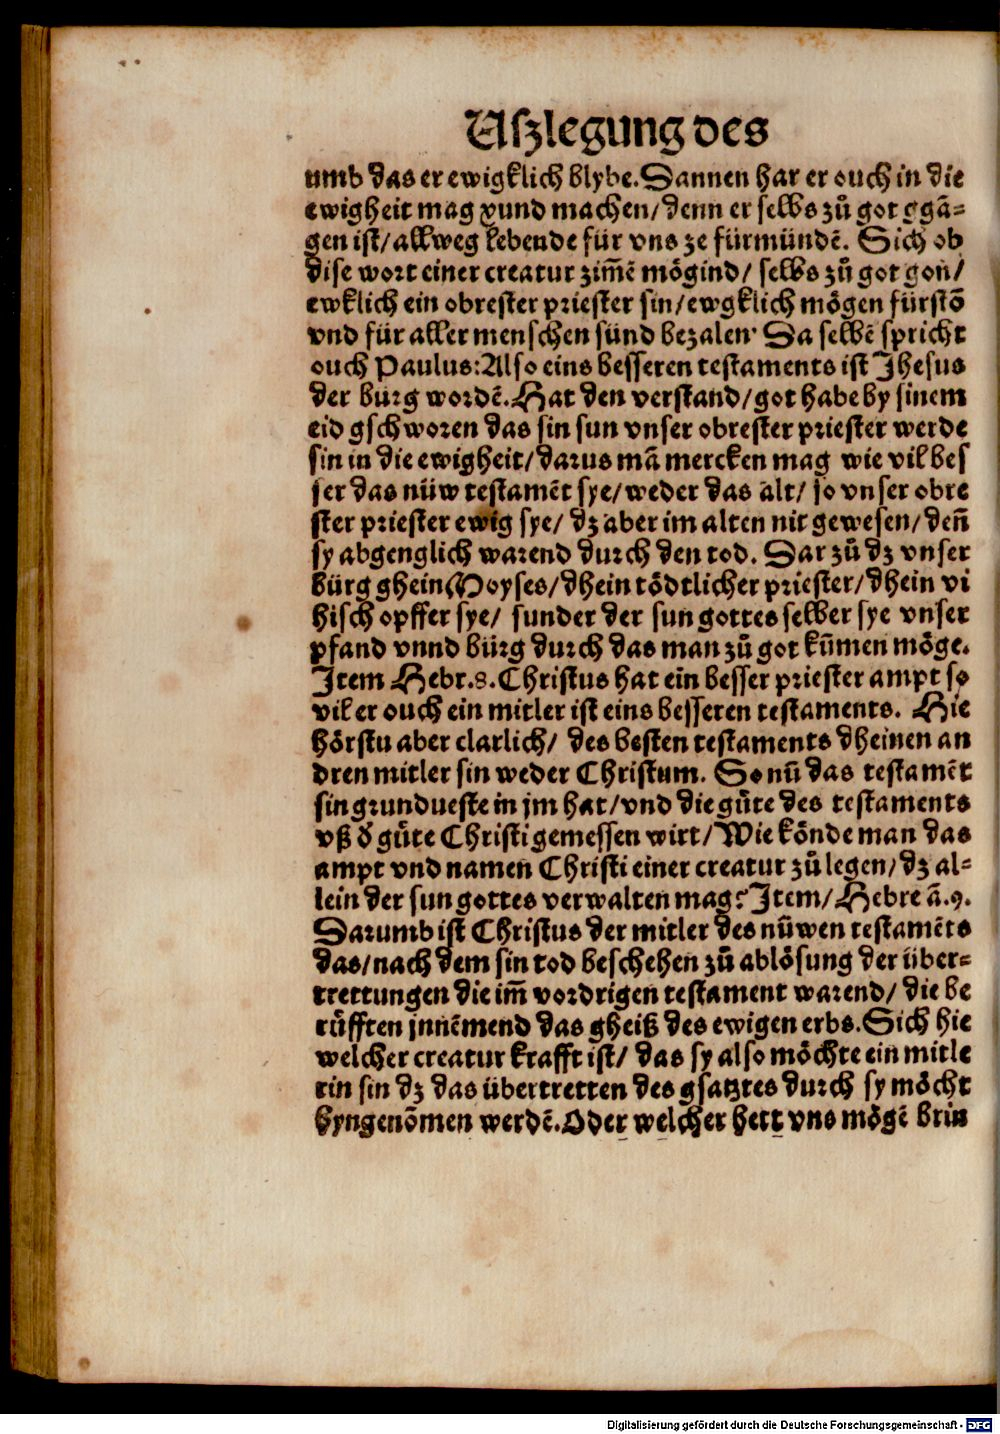 Uſzlegung des
umb das er ewigklich blybe. Dannen har er ouch in die
ewigheit mag gſund machen/ denn er ſelbs zů got ggā⸗
gen iſt/ allweg lebende für vns ze fürmündē. Sich ob
diſe wort einer creatur zim̄ē mögind/ ſelbs zů got gon/
ewklich ein obreſter prieſter ſin/ ewgklich mögen fürſtō
vnd für aller menſchen ſünd bezalen. Da ſelbē ſpricht
ouch Paulus: Alſo eins beſſeren teſtaments iſt Jheſus
der bürg wordē. Hat den verſtand/ got habe by ſinem
eid gſchworen das ſin ſun vnſer obreſter prieſter werde
ſin in die ewigheit/ darus mā mercken mag wie vil beſ
ſer das nüw teſtamēt ſye/ weder das alt/ ſo vnſer obre
ſter prieſter ewig ſye/ dz aber im alten nit geweſen/ deñ
ſy abgenglich warend durch den tod. Dar zů dz vnſer
bürg ghein Moyſes/ dhein tödtlicher prieſter/ dhein vi
hiſch opffer ſye/ ſunder der ſun gottes ſelber ſye vnſer
pfand vnnd bürg durch das man zů got kūmen möge.
Item Hebr. 8. Chriſtus hat ein beſſer prieſter ampt ſo
vil er ouch ein mitler iſt eins beſſeren teſtaments. Hie
hörſtu aber clarlich/ des beſten teſtaments dheinen an
dren mitler ſin weder Chriſtum. So nū das teſtamēt
ſin grundueſte in jm hat/ vnd die güte des teſtaments
vß d̕ güte Chriſti gemeſſen wirt/ Wie könde man das
ampt vnd namen Chriſti einer creatur zů legen/ dz al⸗
lein der ſun gottes verwalten mag? Item/ Hebre ā. 9.
Darumb iſt Chriſtus der mitler des nüwen teſtamēts
das/ nach dem ſin tod beſchehen zů ablöſung der über⸗
trettungen die im̄ vordrigen teſtament warend/ die be
rüfften jnnēmend das gheiß des ewigen erbs. Sich hie
welcher creatur krafft iſt/ das ſy alſo möchte ein mitle
rin ſin dz das übertretten des gſatztes durch ſy möcht
hyngenōmen werdē. Oder welcher hett vns mögē brin
Digitalisierung gefördert durch die Deutsche Forschungsgemeinschaft - DFG